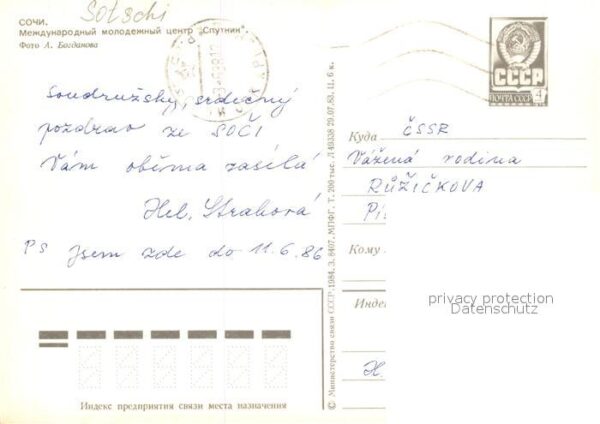 Sotschi
СОЧИ.
Международный молодежный центр "Спутник".
Фото А. Богданова
Soudružsky, srdečný
pozdrav ze SOČI
Vám oběma zasílá
Hel. Strahová
PS jsem zde do 11.6.86
Индекс предприятия связи места назначения
© Министерство связи СССР. 1984. З. 8407. МПФГ. Т. 200 тыс. Л 49338 29.07.83. Ц. 6 к.
СССР
ПОЧТА СССР
4
Куда ČSSR
Vážená rodina
RŮŽIČKOVA
Кому
privacy protection
Datenschutz